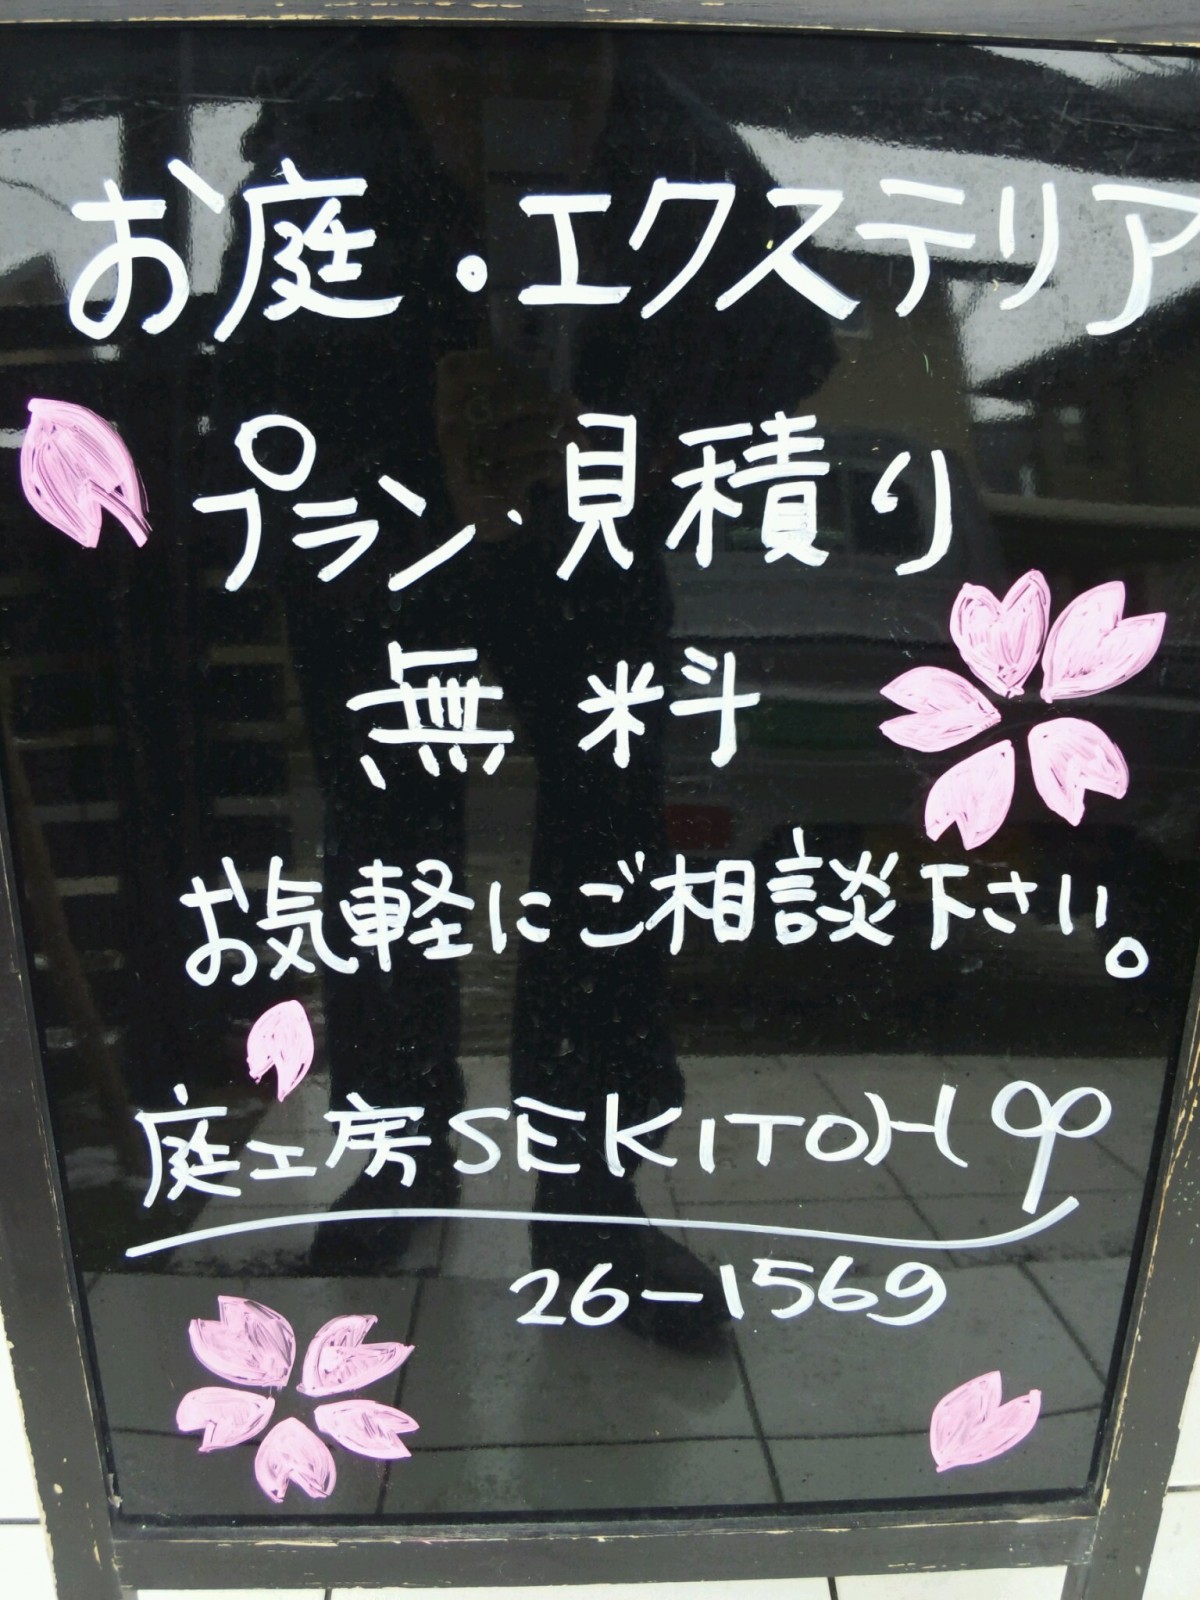 お庭・エクステリア
プラン・見積り
無料
お気軽にご相談下さい。
庭工房SEKITOH
26-1569